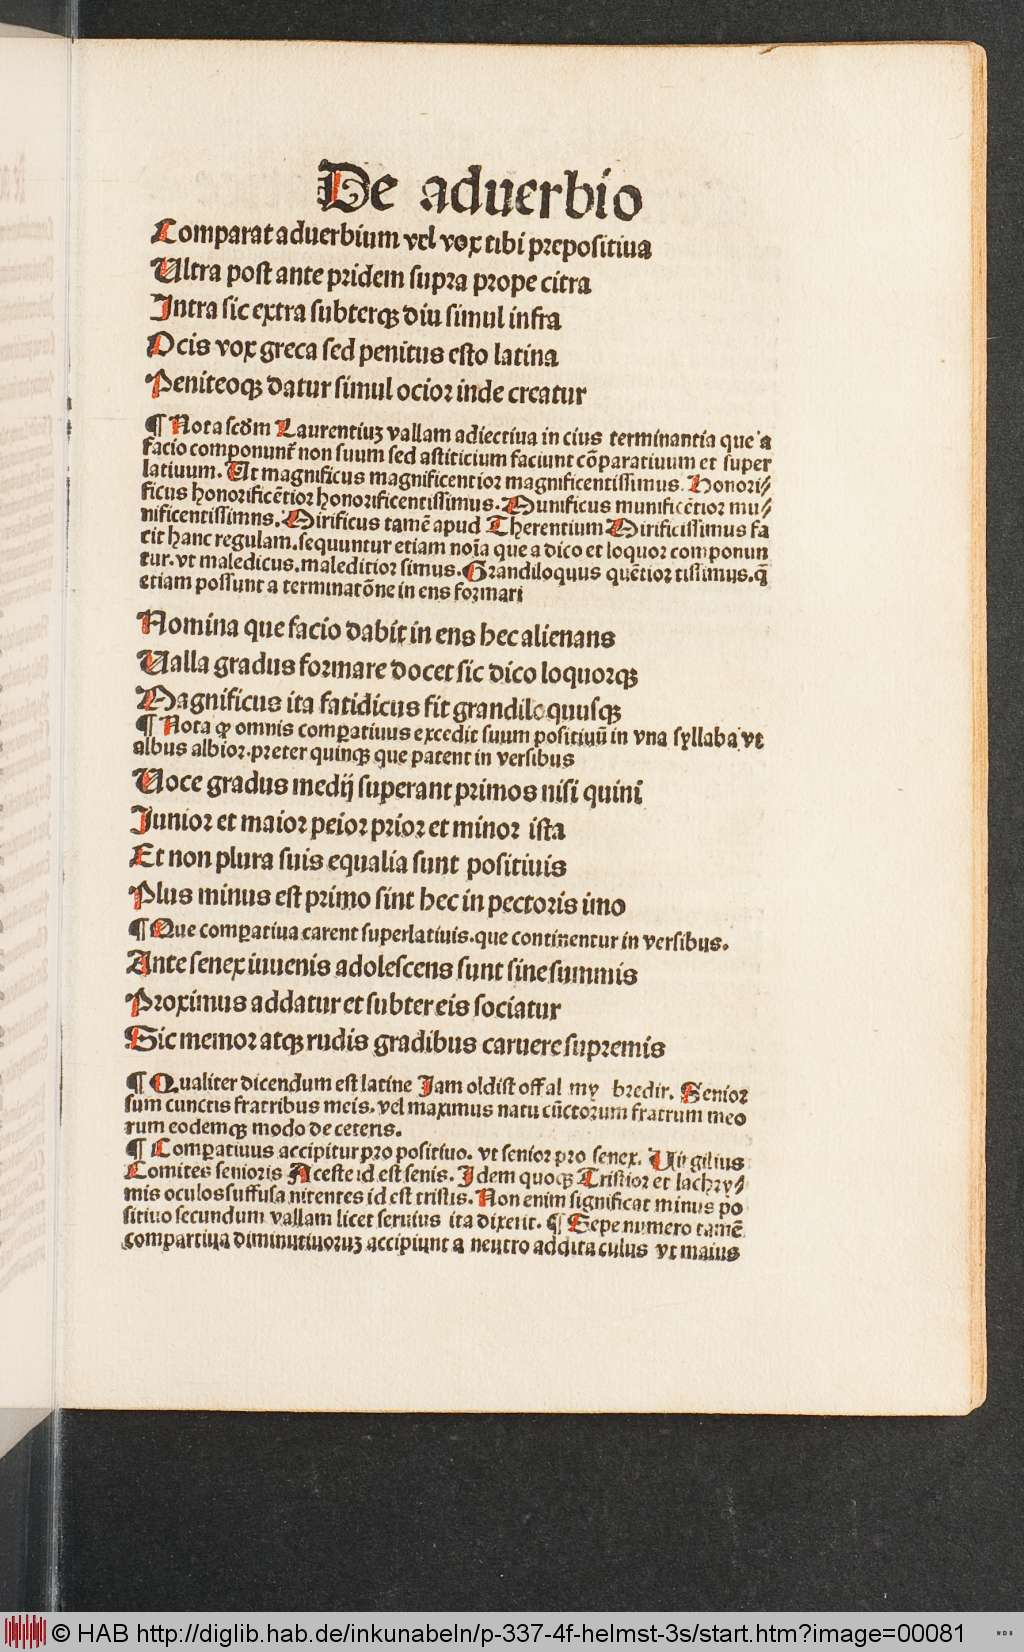 De aduerbio
Comparat aduerbium vel vox tibi prepositiua
Ultra post ante pridem supra prope citra
Intra sic extra subterqꝫ diu simul infra
Ocis vox greca sed penitus esto latina
Peniteoqꝫ datur simul ocior inde creatur
¶ Nota scðm Laurentiuꝫ vallam adiectiua in cius terminantia que a
facio componunt̃ non suum sed astiticium faciunt cõparatiuum et super
latiuum. Ut magnificus magnificentior magnificentissimus. Honori⸗
ficus honorificẽtior honorificentissimus. Munificus munificẽtior mu⸗
nificentissimns. Mirificus tamẽ apud Therentium Mirificissimus fa
cit hanc regulam. sequuntur etiam noĩa que a dico et loquor componun
tur. vt maledicus. maleditior simus. Grandiloquus quẽtior tissimus. q̃
etiam possunt a terminatõne in ens formari
Nomina que facio dabit in ens hec alienans
Ualla gradus formare docet sic dico loquorqꝫ
Magnificus ita fatidicus fit grandiloquusqꝫ
¶ Nota ꝙ omnis comꝑatiuus excedit suum positiuũ in vna syllaba vt
albus albior. preter quinqꝫ que patent in versibus
Uoce gradus medij superant primos nisi quini
Junior et maior peior prior et minor ista
Et non plura suis equalia sunt positiuis
Plus minus est primo sint hec in pectoris imo
¶ Que comꝑatiua carent superlatiuis. que continentur in versibus.
Ante senex iuuenis adolescens sunt sine summis
Proximus addatur et subter eis sociatur
Sic memor atqꝫ rudis gradibus caruere supremis
¶ Qualiter dicendum est latine Jam oldist off al my bredir. Senior
sum cunctis fratribus meis. vel maximus natu cũctorum fratrum meo
rum eodemqꝫ modo de ceteris.
¶ Comꝑatiuus accipitur pro positiuo. vt senior pro senex. Uirgilius
Comites senioris Aceste id est senis. Idem quoqꝫ Tristior et lachry⸗
mis oculos suffusa nitentes id est tristis. Non enim significat minus po
sitiuo secundum vallam licet seruius ita dixerit. ¶ Sepe numero tamẽ
comꝑartiua diminutiuoruꝫ accipiunt a neutro addita culus vt maius
© HAB http://diglib.hab.de/inkunabeln/p-337-4f-helmst-3s/start.htm?image=00081